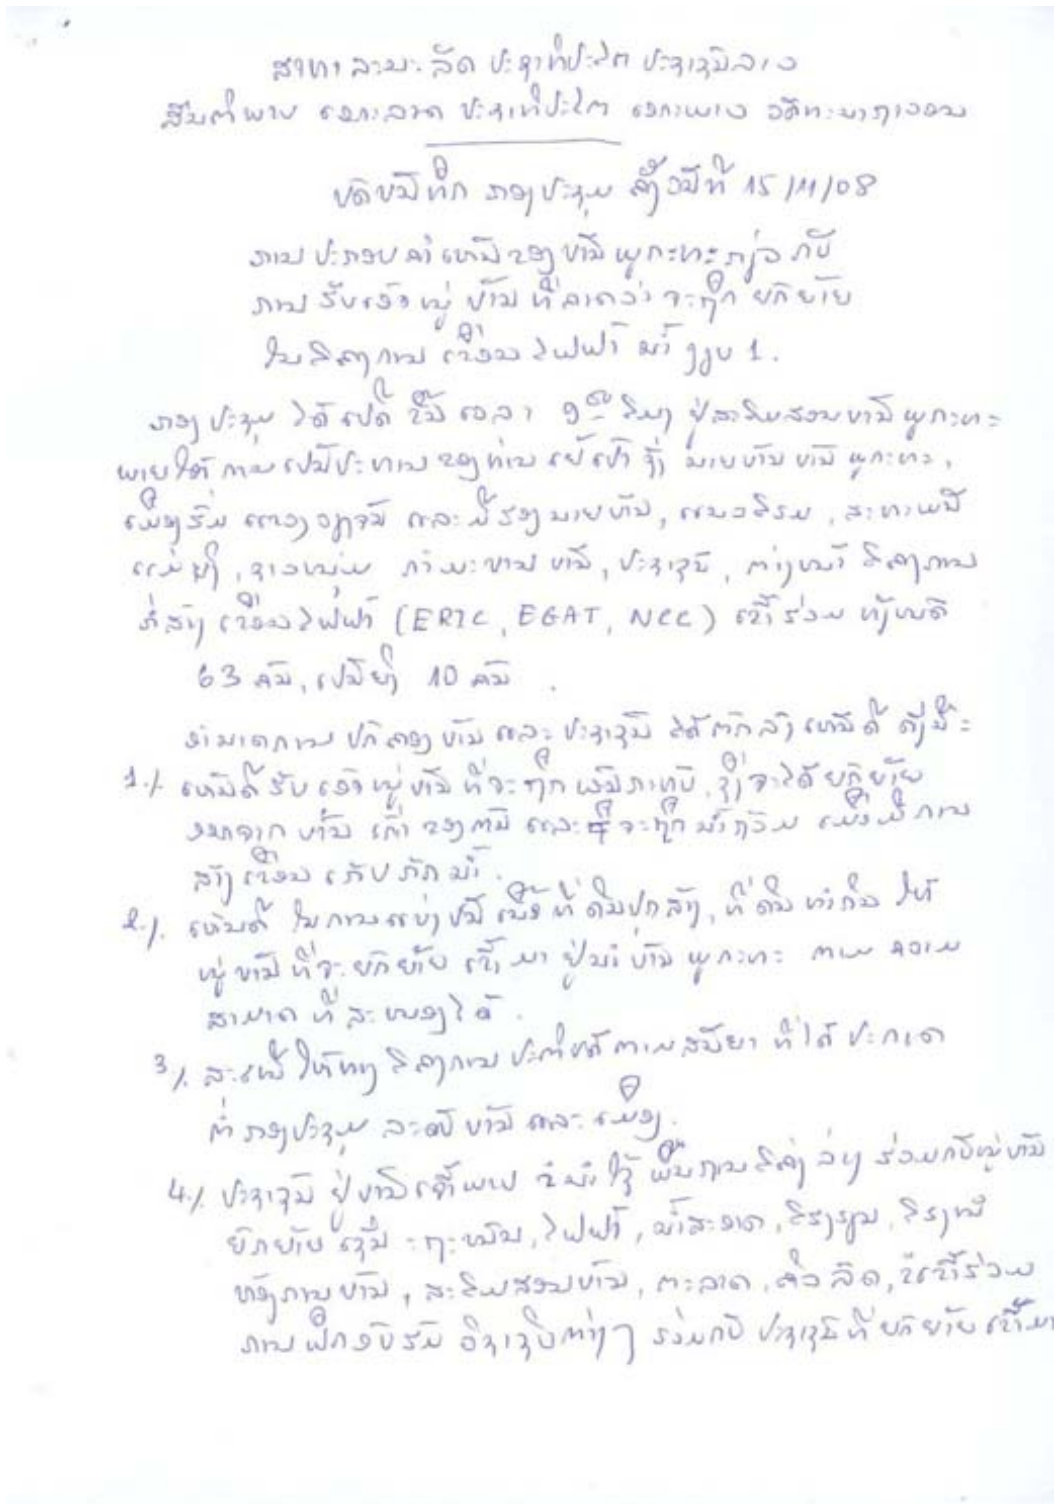 ສາທາລະນະລັດ ປະຊາທິປະໄຕ ປະຊາຊົນລາວ
ສັນຕິພາບ ເອກະລາດ ປະຊາທິປະໄຕ ເອກະພາບ ວັດທະນາຖາວອນ
ບົດບັນທຶກ ກອງປະຊຸມ ຄັ້ງວັນທີ 15/11/08
ການປະກອບຄຳເຫັນຂອງບ້ານ ພູກະທະ ກ່ຽວກັບ
ການຮັບເອົາໝູ່ບ້ານ ທີ່ຄາດວ່າ ຈະຖືກ ຍົກຍ້າຍ
ໃນໂຄງການ ເຂື່ອນໄຟຟ້ານ້ຳງຽບ 1.
ກອງປະຊຸມ ໄດ້ເປີດຂຶ້ນເວລາ 9 ໂມງ ຢູ່ສະໂມສອນບ້ານພູກະທະ
ພາຍໃຕ້ການເປັນປະທານຂອງທ່ານ ນາຍບ້ານ ບ້ານພູກະທະ,
ເມືອງຮົ່ມ ແຂວງວຽງຈັນ ແລະ ມີຮອງນາຍບ້ານ, ແນວໂຮມ, ສະຫະພັນ
ແມ່ຍິງ, ຊາວໜຸ່ມ ກຳມະບານບ້ານ, ປະຊາຊົນ, ຕາງໜ້າໂຄງການ
ກໍ່ສ້າງເຂື່ອນໄຟຟ້າ (ERIC, EGAT, NCC) ເຂົ້າຮ່ວມທັງໝົດ
63 ຄົນ, ເປັນຍິງ 10 ຄົນ.
ອຳນາດການປົກຄອງບ້ານ ແລະ ປະຊາຊົນ ໄດ້ຕົກລົງເຫັນດີ ດັ່ງນີ້:
1./. ເຫັນດີຮັບເອົາໝູ່ບ້ານທີ່ຈະຖືກຜົນກະທົບ, ຊຶ່ງຈະໄດ້ຍົກຍ້າຍ
ອອກຈາກ ບ້ານເກົ່າຂອງຕົນ ແລະ ທີ່ຈະຖືກນ້ຳຖ້ວມ ເມື່ອມີການ
ສ້າງເຂື່ອນເກັບກັກນ້ຳ.
2./. ເຫັນດີໃນການແບ່ງປັນເນື້ອທີ່ດິນປຸກສ້າງ, ທີ່ດິນທຳກິນ ໃຫ້
ໝູ່ບ້ານທີ່ຈະຍົກຍ້າຍເຂົ້າມາຢູ່ນຳບ້ານພູກະທະ ຕາມຄວາມ
ສາມາດທີ່ສະໜອງໄດ້.
3/. ສະເໜີໃຫ້ທາງໂຄງການປະຕິບັດຕາມສັນຍາ ທີ່ໄດ້ປະກາດ
ຕໍ່ກອງປະຊຸມ ລະດັບບ້ານ ແລະ ເມືອງ.
4./. ປະຊາຊົນ ຢູ່ບ້ານເຈົ້າພາບ ຂໍນຳໃຊ້ພື້ນຖານໂຄງລ່າງ ຮ່ວມກັບໝູ່ບ້ານ
ຍົກຍ້າຍເຊັ່ນ: ຖະໜົນ, ໄຟຟ້າ, ນ້ຳສະອາດ, ໂຮງຮຽນ, ໂຮງໝໍ
ຫ້ອງການບ້ານ, ສະໂມສອນບ້ານ, ຕະລາດ, ຄິວລົດ, ຂໍເຂົ້າຮ່ວມ
ການຝຶກອົບຮົມ ວິຊາຊີບຕ່າງໆ ຮ່ວມກັບ ປະຊາຊົນທີ່ຍົກຍ້າຍເຂົ້າມາ